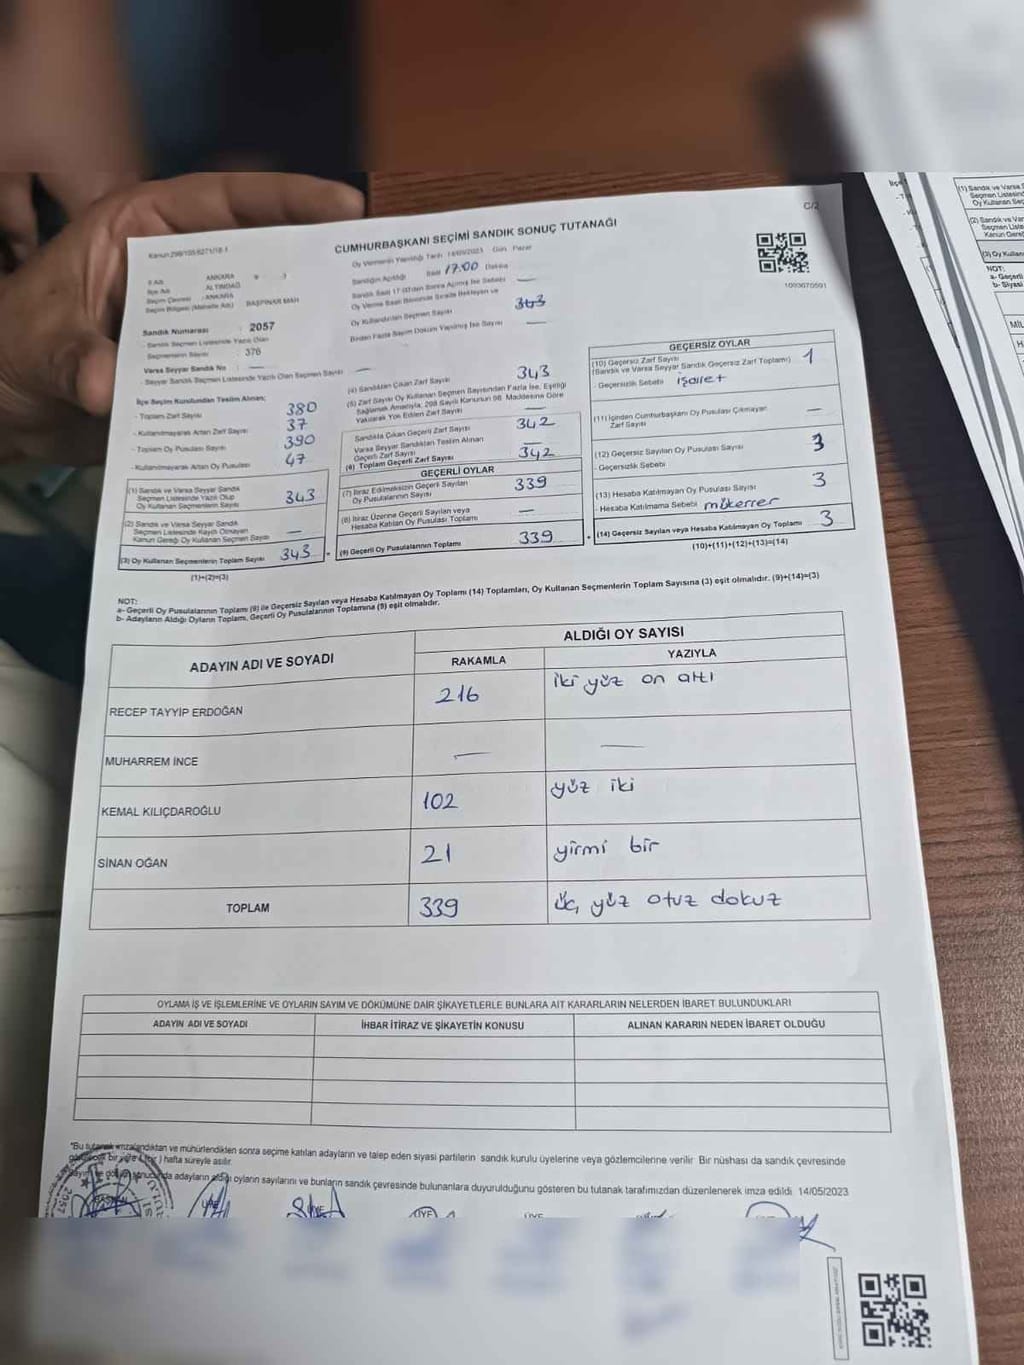 C/2
CUMHURBAŞKANI SEÇİMİ SANDIK SONUÇ TUTANAĞI
Oy Vermenin Yapıldığı Tarih : 14/05/2023 Gün : Pazar
Sandığın Açıldığı Saat 17:00 Dakika
Oy Kullandırılan Seçmen Sayısı 343
1093670591
İl Adı ANKARA
İlçe Adı ALTINDAĞ
Seçim Çevresi : ANKARA
BAŞPINAR MAH
Sandık Numarası : 2057
- Sandık Seçmen Listesinde Yazılı Olan
Seçmenlerin Sayısı : 376
Varsa Seyyar Sandık No
- Seyyar Sandık Seçmen Listesinde Yazılı Olan Seçmen Sayısı
İlçe Seçim Kurulundan Teslim Alınan;
- Toplam Zarf Sayısı 380
- Kullanılmayarak Artan Zarf Sayısı 37
- Toplam Oy Pusulası Sayısı 390
- Kullanılmayarak Artan Oy Pusulası 47
(1) Sandık ve Varsa Seyyar Sandık
Seçmen Listesinde Yazılı Olup
Oy Kullanan Seçmenlerin Sayısı 343
(2) Sandık ve Varsa Seyyar Sandık
Seçmen Listesinde Kaydı Olmayan
Kanun Gereği Oy Kullanan Seçmen Sayısı —
(3) Oy Kullanan Seçmenlerin Toplam Sayısı 343
(1)+(2)=(3)
(4) Sandıktan Çıkan Zarf Sayısı 343
(5) Zarf Sayısı Oy Kullanan Seçmen Sayısından Fazla İse, Eşitliği
Sağlamak Amacıyla, 298 Sayılı Kanunun 98. Maddesine Göre
Yakılarak Yok Edilen Zarf Sayısı —
Sandıkta Çıkan Geçerli Zarf Sayısı 342
Varsa Seyyar Sandıktan Teslim Alınan
Geçerli Zarf Sayısı —
(6) Toplam Geçerli Zarf Sayısı 342
GEÇERLİ OYLAR
(7) İtiraz Edilmeksizin Geçerli Sayılan
Oy Pusulalarının Sayısı 339
(8) İtiraz Üzerine Geçerli Sayılan veya
Hesaba Katılan Oy Pusulası Toplamı —
(9) Geçerli Oy Pusulalarının Toplamı 339
GEÇERSİZ OYLAR
(10) Geçersiz Zarf Sayısı
(Sandık ve Varsa Seyyar Sandık Geçersiz Zarf Toplamı) 1
- Geçersizlik Sebebi işaret
(11) İçinden Cumhurbaşkanı Oy Pusulası Çıkmayan
Zarf Sayısı —
(12) Geçersiz Sayılan Oy Pusulası Sayısı 3
- Geçersizlik Sebebi
(13) Hesaba Katılmayan Oy Pusulası Sayısı 3
- Hesaba Katılmama Sebebi mükerrer
(14) Geçersiz Sayılan veya Hesaba Katılmayan Oy Toplamı 3
(10)+(11)+(12)+(13)=(14)
NOT:
a- Geçerli Oy Pusulalarının Toplamı (9) ile Geçersiz Sayılan veya Hesaba Katılmayan Oy Toplamı (14) Toplamları, Oy Kullanan Seçmenlerin Toplam Sayısına (3) eşit olmalıdır. (9)+(14)=(3)
b- Adayların Aldığı Oyların Toplamı, Geçerli Oy Pusulalarının Toplamına (9) eşit olmalıdır.
ADAYIN ADI VE SOYADI
ALDIĞI OY SAYISI
RAKAMLA
YAZIYLA
RECEP TAYYİP ERDOĞAN 216 iki yüz on altı
MUHARREM İNCE — —
KEMAL KILIÇDAROĞLU 102 yüz iki
SİNAN OĞAN 21 yirmi bir
TOPLAM 339 üç yüz otuz dokuz
OYLAMA İŞ VE İŞLEMLERİNE VE OYLARIN SAYIM VE DÖKÜMÜNE DAİR ŞİKAYETLERLE BUNLARA AİT KARARLARIN NELERDEN İBARET BULUNDUKLARI
ADAYIN ADI VE SOYADI
İHBAR İTİRAZ VE ŞİKAYETİN KONUSU
ALINAN KARARIN NEDEN İBARET OLDUĞU
*Bu tutanak imzalandıktan ve mühürlendikten sonra seçime katılan adayların ve talep eden siyasi partilerin sandık kurulu üyelerine veya gözlemcilerine verilir. Bir nüshası da sandık çevresinde
bir yere hafta süreyle asılır.
adayların aldığı oyların sayılarını ve bunların sandık çevresinde bulunanlara duyurulduğunu gösteren bu tutanak tarafımızdan düzenlenerek imza edildi. 14/05/2023
BAŞKAN ÜYE ÜYE ÜYE ÜYE
2057